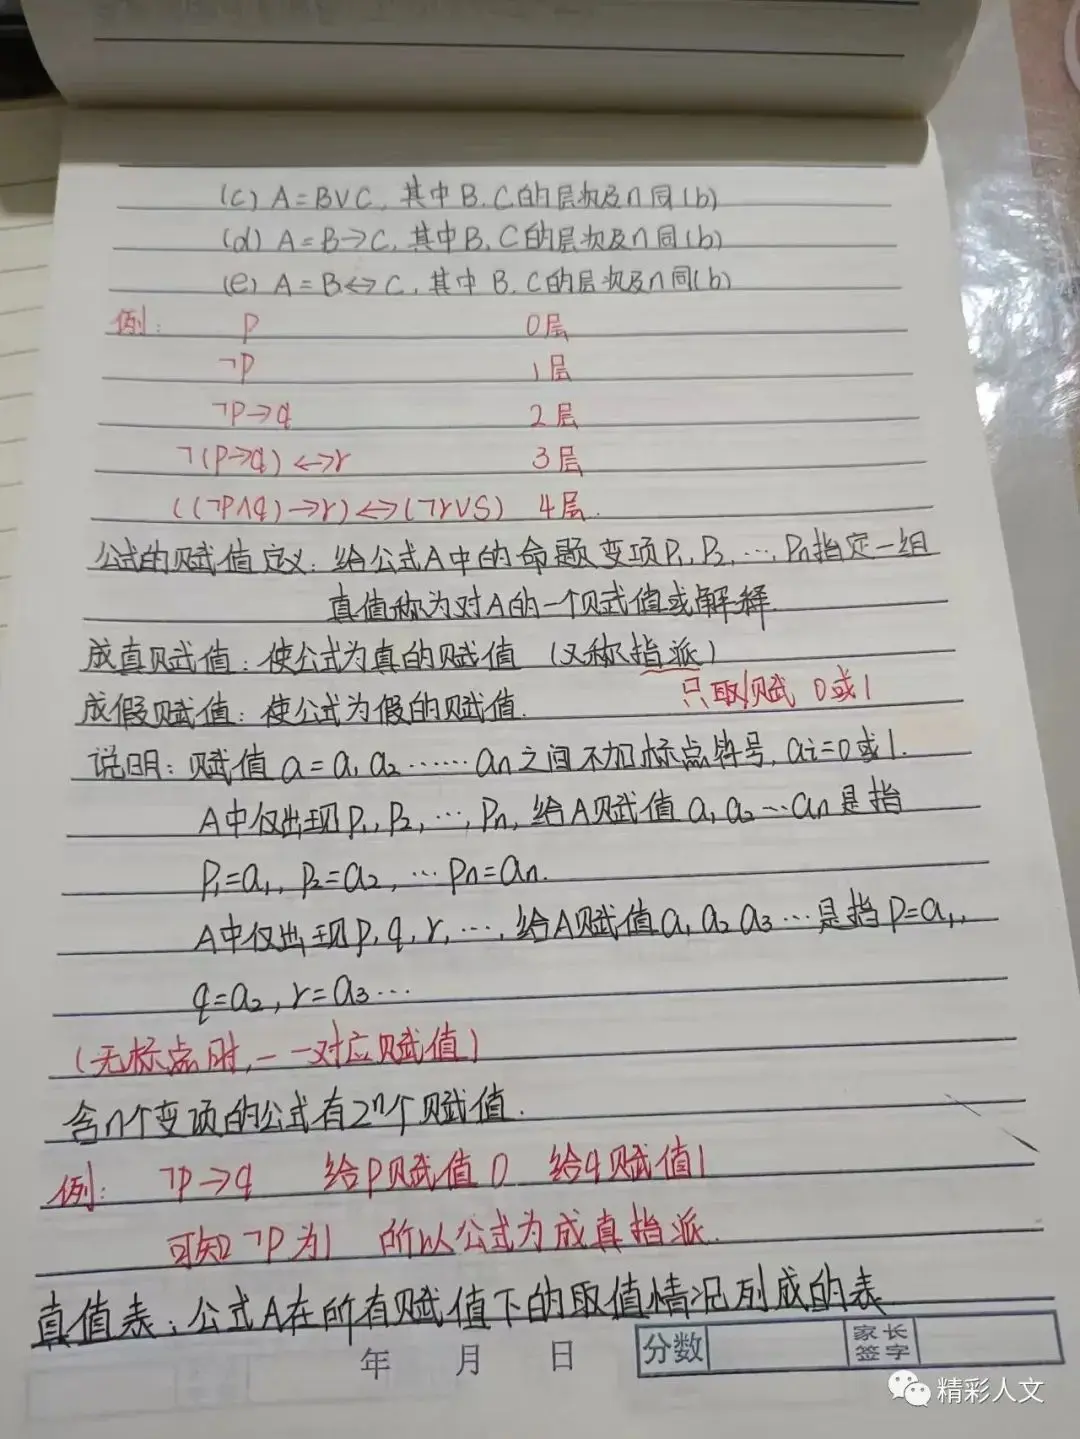 (c) A=B∨C, 其中B.C的层次及n同(b)
(d) A=B→C, 其中B,C的层次及n同(b)
(e) A=B↔C, 其中B.C的层次及n同(b)
例: P 0层
¬P 1层
¬P→q 2层
¬(P→q)↔r 3层
((¬P∧q)→r)↔(¬r∨S) 4层.
公式的赋值定义: 给公式A中的命题变项P₁,P₂,…,Pn指定一组
真值称为对A的一个赋值或解释.
成真赋值: 使公式为真的赋值 (又称指派)
只取/赋 0或1
成假赋值: 使公式为假的赋值.
说明: 赋值a=a₁a₂……an之间不加标点符号, ai=0或1.
A中仅出现P₁,P₂,…,Pn, 给A赋值a₁a₂…an是指
P₁=a₁, P₂=a₂, …Pn=an.
A中仅出现P,q,r,…, 给A赋值a₁a₂a₃…是指P=a₁,
q=a₂, r=a₃…
(无标点时, 一一对应赋值)
含n个变项的公式有2ⁿ个赋值.
例: ¬P→q 给P赋值0 给q赋值1
可知¬P为1 所以公式为成真指派.
真值表: 公式A在所有赋值下的取值情况列成的表
年 月 日 分数 家长签字
精彩人文